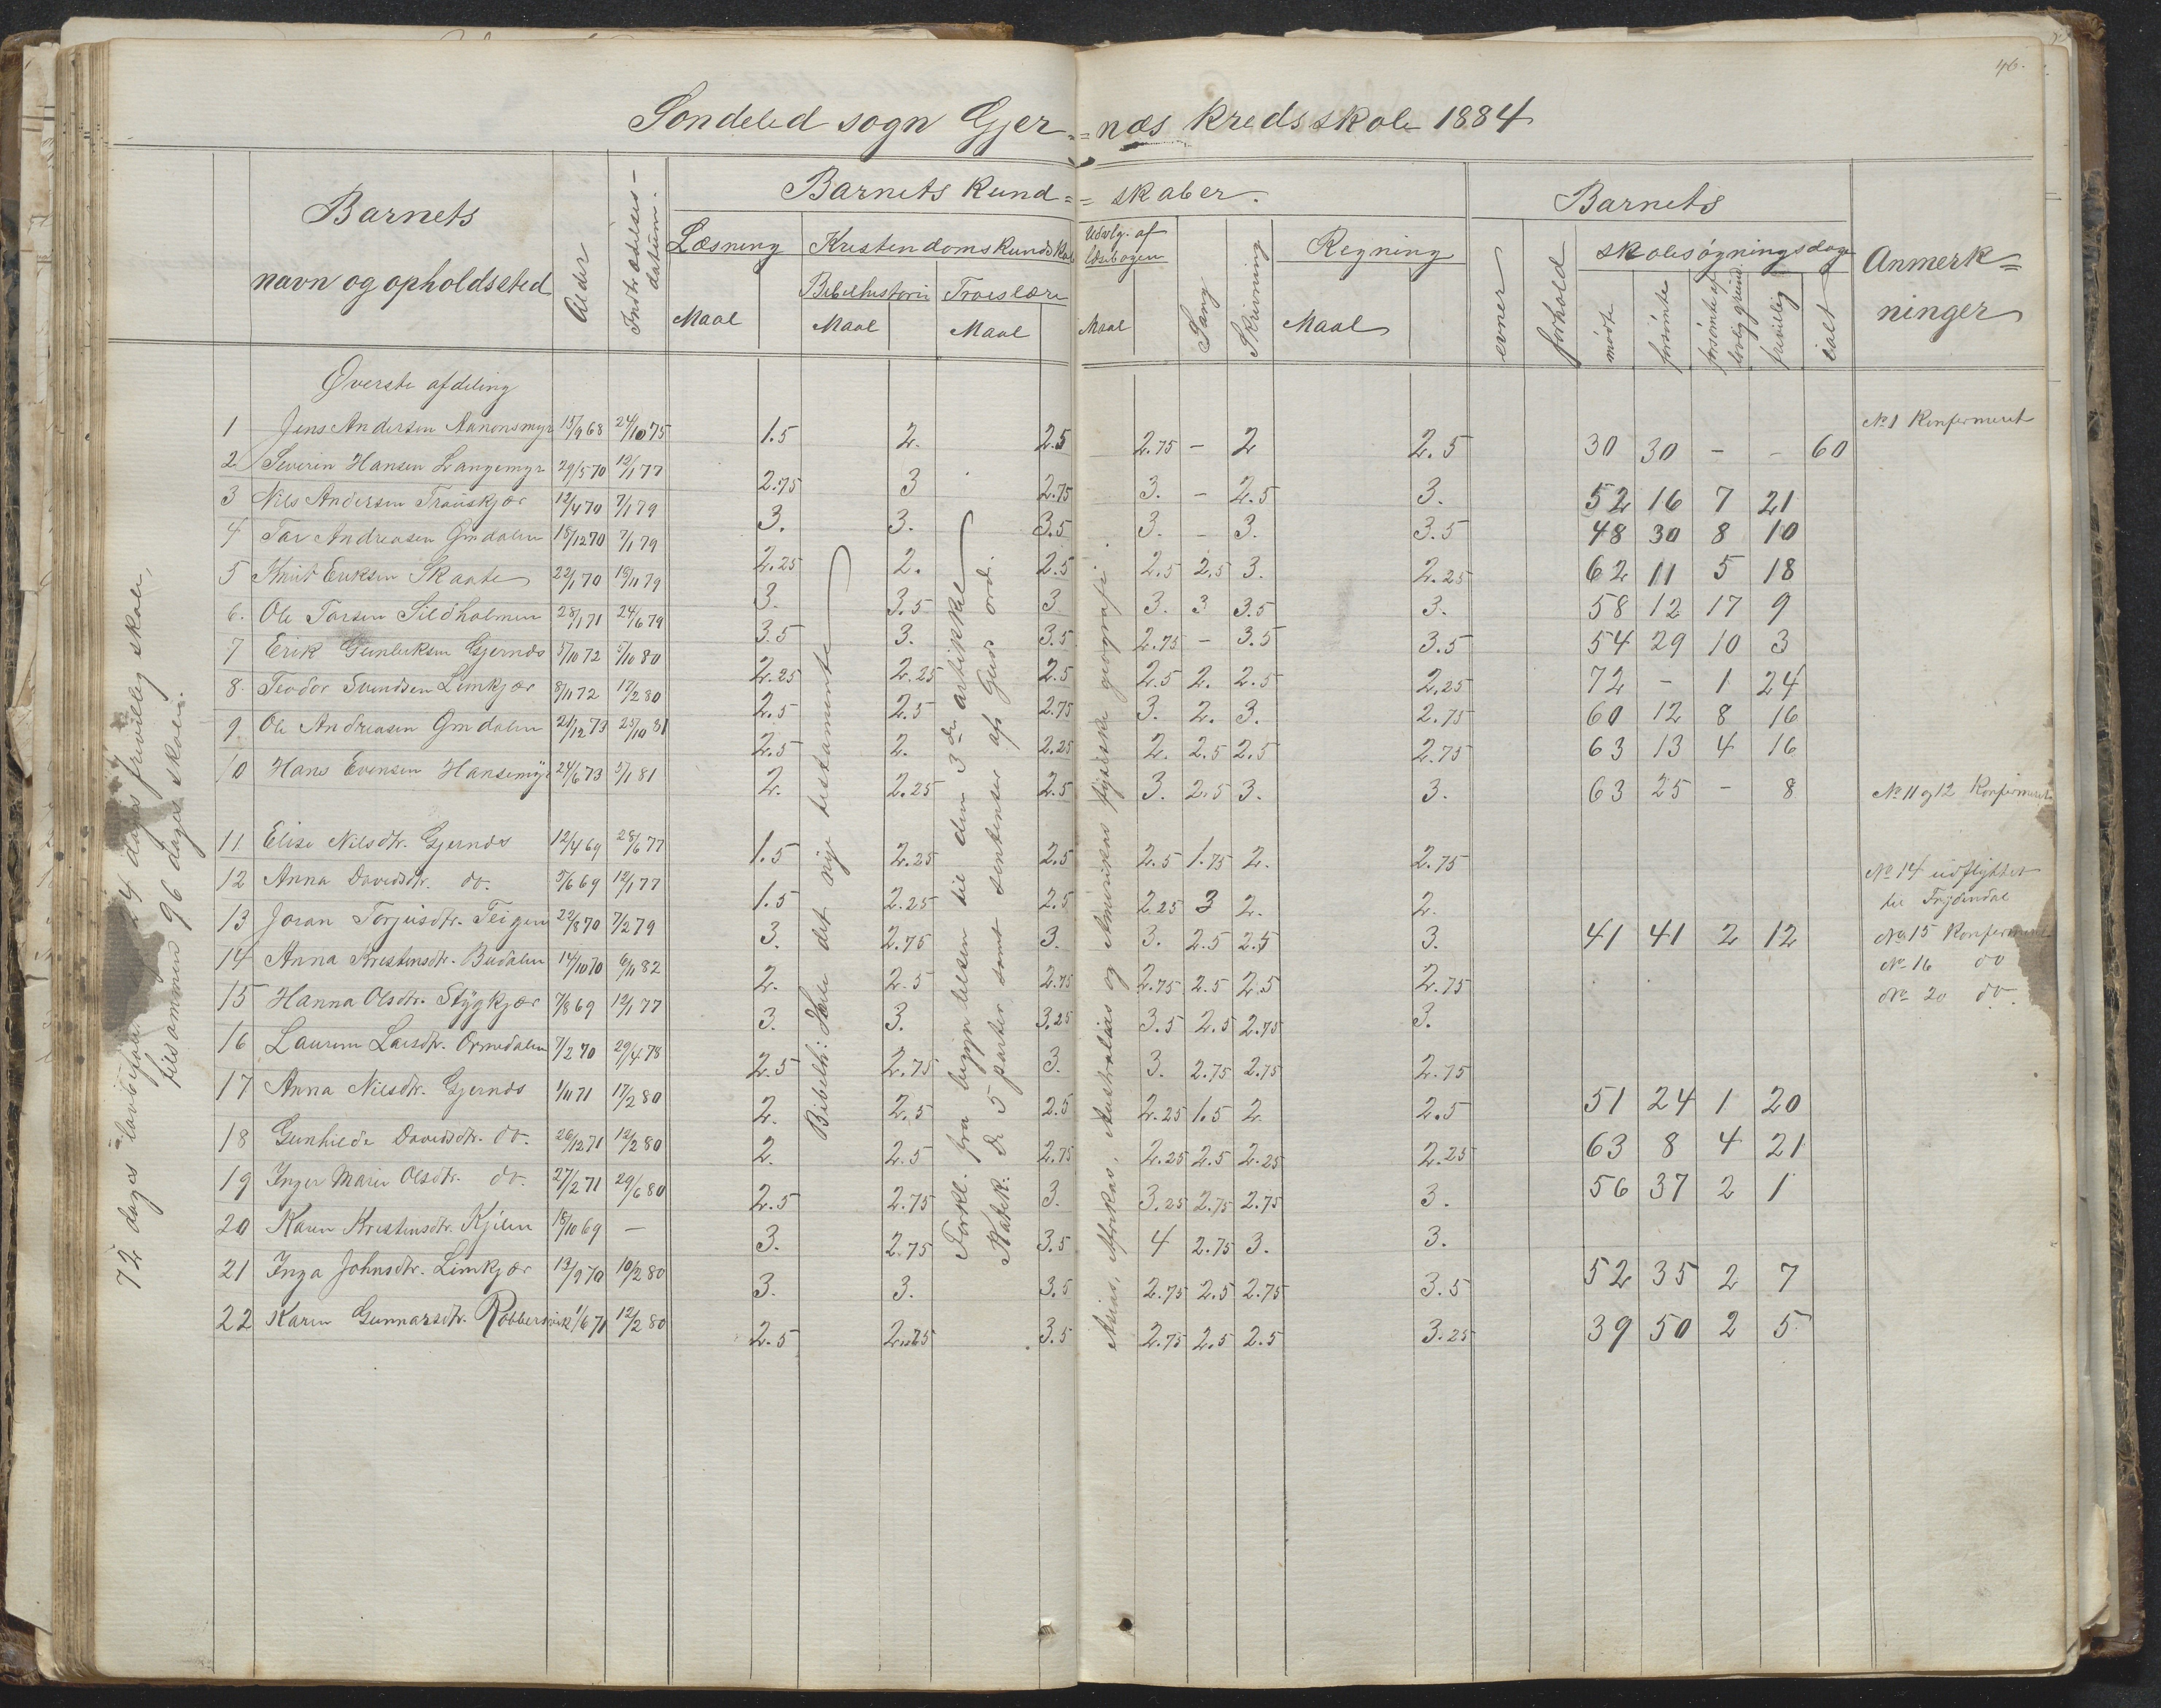 46.
Søndeled sogn Gjer-=næs kredsskole 1884
Barnets
navn og opholdssted
Alder
Indtrædelses-
datum.
Barnets kund-=skaber.
Læsning
Maal
Kristendomskundskab
Bibelhistorie
Maal
Troeslære
Maal
Udvalg. af
læsebogen
Maal
Sang
Skrivning
Regning
Maal
Barnets
evner
forhold
skolesøgningsdage
mødte
forsømte
forsømte af
lovlig grund
frivillig
ialt
Anmerk=
ninger
Øverste afdeling
1 Jens Andersen Nanonsmyr 15/9 68 24/10 75 1.5 2. 2.5 2.75 – 2 2.5 30 30 – – 60 No 1 Konfermeret
2 Severin Hansen Langemyr 29/5 70 12/1 77 2.75 3 2.75 3. – 2.5 3. 52 16 7 21
3 Nils Andersen Trauskjær 12/4 70 7/1 79 3. 3. 3.5 3. – 3. 3.5 48 30 8 10
4 Tar Andreasen Gmdalen 18/12 70 7/1 79 2.25 2. 2.5 2.5 2.5 3. 2.25 62 11 5 18
5 Knut Eriksen Skaate 22/1 70 18/11 79 3. 3.5 3 3. 3 3.5 3. 58 12 17 9
6. Ole Tarsen Sildholmen 28/1 71 24/6 79 3.5 3. 3.5 2.75 – 3.5 3.5 54 29 10 3
7 Erik Gunleksen Gjernæs 5/10 72 5/10 80 2.25 2.25 2.5 2.5 2. 2.5 2.25 72 – 1 24
8. Teodor Svendsen Limkjær 8/11 72 17/2 80 2.5 2.5 2.75 3. 2. 3. 2.75 60 12 8 16
9. Ole Andreasen Gmdalen 21/12 73 25/10 81 2.5 2. 2.25 2. 2.5 2.5 2.75 63 13 4 16
10 Hans Evensen Hansemyr 24/6 73 5/1 81 2. 2.25 2.5 3. 2.5 3. 3. 63 25 – 8
No 11 og 12 Konfirmeret
11 Elise Nilsdtr. Gjernæs 12/4 69 28/6 77 1.5 2.25 2.5 2.5 1.75 2. 2.75
12 Anna Davidsdtr. do. 5/6 69 12/1 77 1.5 2.25 2.5 2.25 3 2. 2.
No 14 udflyttet
til
13 Joran Torjusdtr. Teigen 22/8 70 7/2 79 3. 2.75 3. 3. 2.5 2.5 3. 41 41 2 12
No 15 Konfermeret
14 Anna Kristensdtr. Budalen 14/10 70 6/11 82 2. 2.5 2.75 2.75 2.5 2.5 2.75
No 16 do
15 Hanna Olsdtr. Stygkjær 7/8 69 12/1 77 3. 3. 3.25 3.5 2.5 2.75 3.
No 20 do.
16 Laurine Larsdtr. Ormdalen 7/2 70 29/4 78 2.5 2.75 3. 3. 2.75 2.75 2.75
17 Anna Nilsdtr. Gjernæs 1/11 71 17/2 80 2. 2.5 2.5 2.25 1.5 2 2.5 51 24 1 20
18 Gunhilde Davidsdtr. do. 26/12 71 12/2 80 2. 2.5 2.75 2.25 2.5 2.25 2.25 63 8 4 21
19 Inger Marie Olsdtr. do. 27/2 71 29/6 80 2.5 2.75 3. 3.25 2.75 2.75 3. 56 37 2 1
20 Karen Kristensdtr. Kjilen 18/10 69 – 3. 2.75 3.5 4 2.75 3. 3.
21 Inga Johnsdtr. Limkjær 13/9 70 10/2 80 3. 3. 3.5 2.75 2.5 2.75 3.5 52 35 2 7
22 Karen Gunnarsdtr. Robbersvik 1/6 71 12/2 80 2.5 2.75 3.5 2.75 2.5 2.5 3.25 39 50 2 5
72 dages lovbefalet 24 dages frivillig skole,
tilsammen 96 dages skole.
Bibelh: Hele det nye testamente
Forkl. fra begyndelsen til den 3die artikkel
Katek. De 5 parter samt sentenser af Guds ord.
Asias, Afrikas, Australias og Amerikas fysiske geografi.